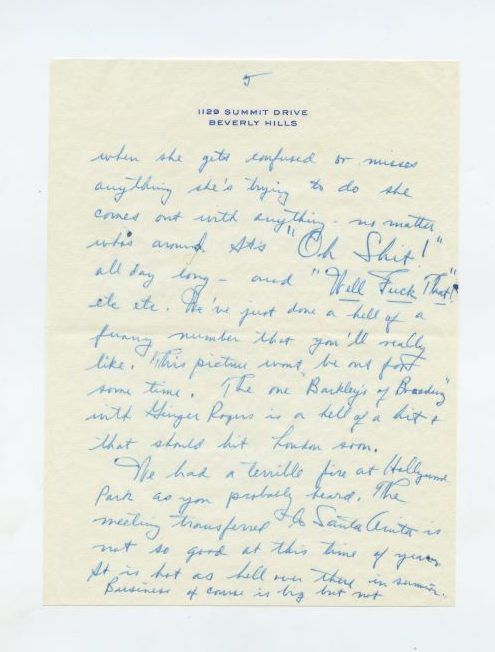 5
1129 SUMMIT DRIVE
BEVERLY HILLS
when she gets confused or misses
anything she's trying to do she
comes out with anything - no matter
who's around. It's "Oh Shit!"
all day long - and "Well Fuck That"!
etc etc. We've just done a hell of a
funny number that you'll really
like. This picture wont be out for
some time. The one "Barkley's of Broadway"
with Ginger Rogers is a hell of a hit &
that should hit London soon.
We had a terrible fire at Hollywood
Park as you probably heard. The
meeting transferred to Santa Anita is
not so good at this time of year.
It is hot as hell over there in summer.
Business of course is big but not